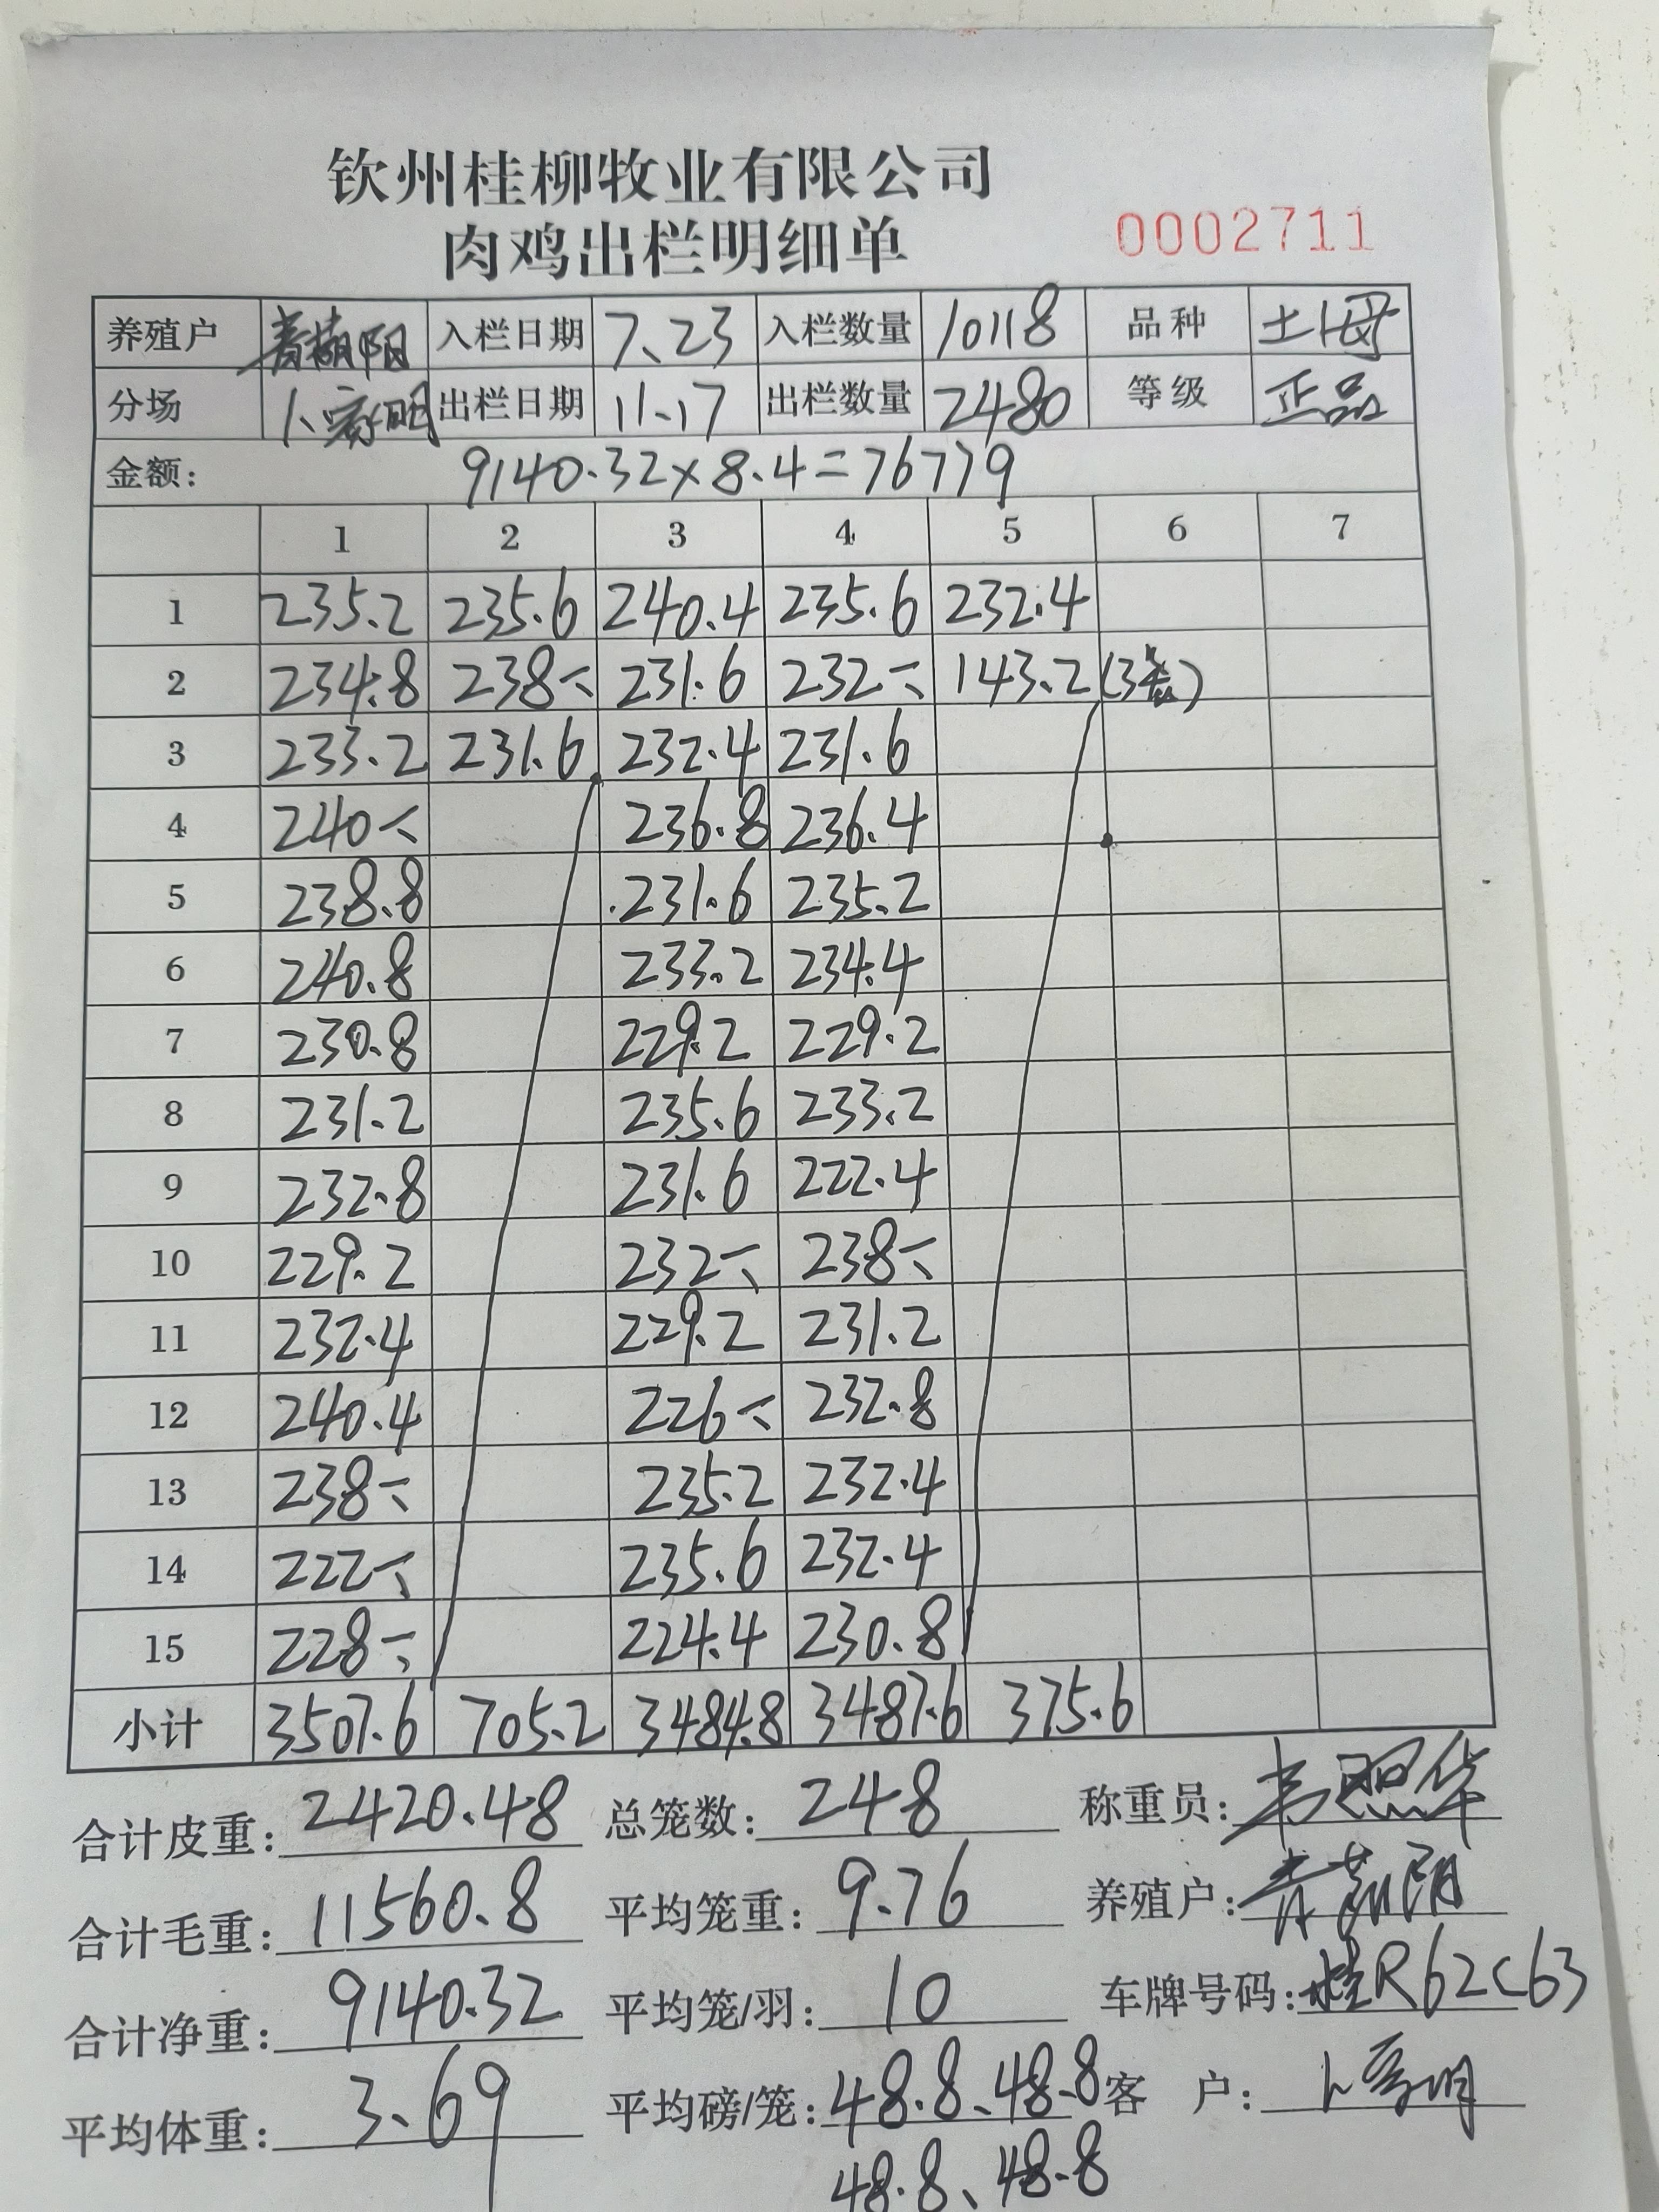 钦州桂柳牧业有限公司
肉鸡出栏明细单 0002711
养殖户 入栏日期 7.23 入栏数量 10118 品种 土母
分场 出栏日期 11.17 出栏数量 2480 等级 正品
金额: 9140.32×8.4=76779
1 2 3 4 5 6 7
1 235.2 235.6 240.4 235.6 232.4
2 234.8 238 231.6 232 143.2 (3
3 233.2 231.6 232.4 231.6
4 240 236.8 236.4
5 238.8 231.6 235.2
6 240.8 233.2 234.4
7 230.8 229.2 229.2
8 231.2 235.6 233.2
9 232.8 231.6 222.4
10 229.2 232 238
11 232.4 229.2 231.2
12 240.4 226 232.8
13 238 235.2 232.4
14 222 235.6 232.4
15 228 224.4 230.8
小计 3507.6 705.2 3484.8 3487.6 375.6
合计皮重: 2420.48 总笼数: 248 称重员: 韦照华
合计毛重: 11560.8 平均笼重: 9.76 养殖户:
合计净重: 9140.32 平均笼/羽: 10 车牌号码: 桂R62C63
平均体重: 3.69 平均磅/笼: 48.8、48.8 客 户:
48.8、48.8